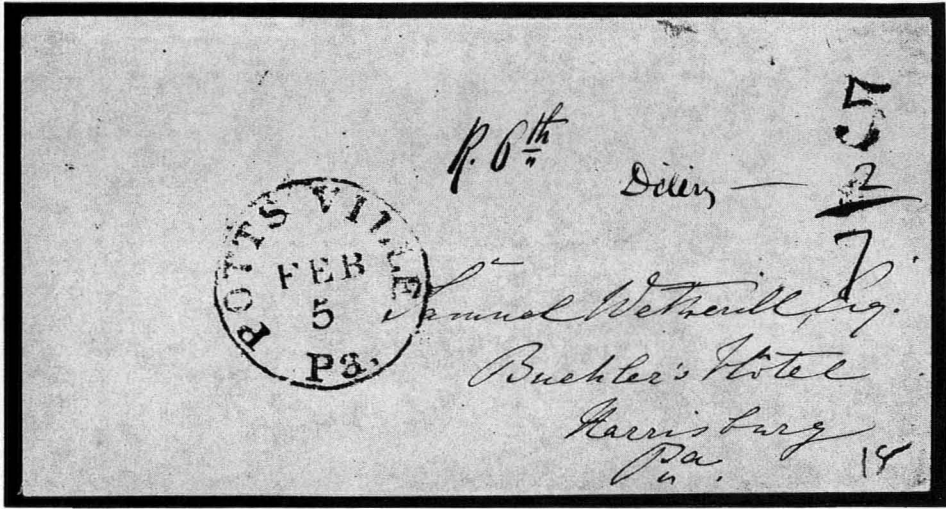 5
R. 6th
Delivy — 2
7
POTTSVILLE
FEB
5
Pa.
Samuel Wetherill, Esq.
Buehler's Hotel
Harrisburg
Pa.